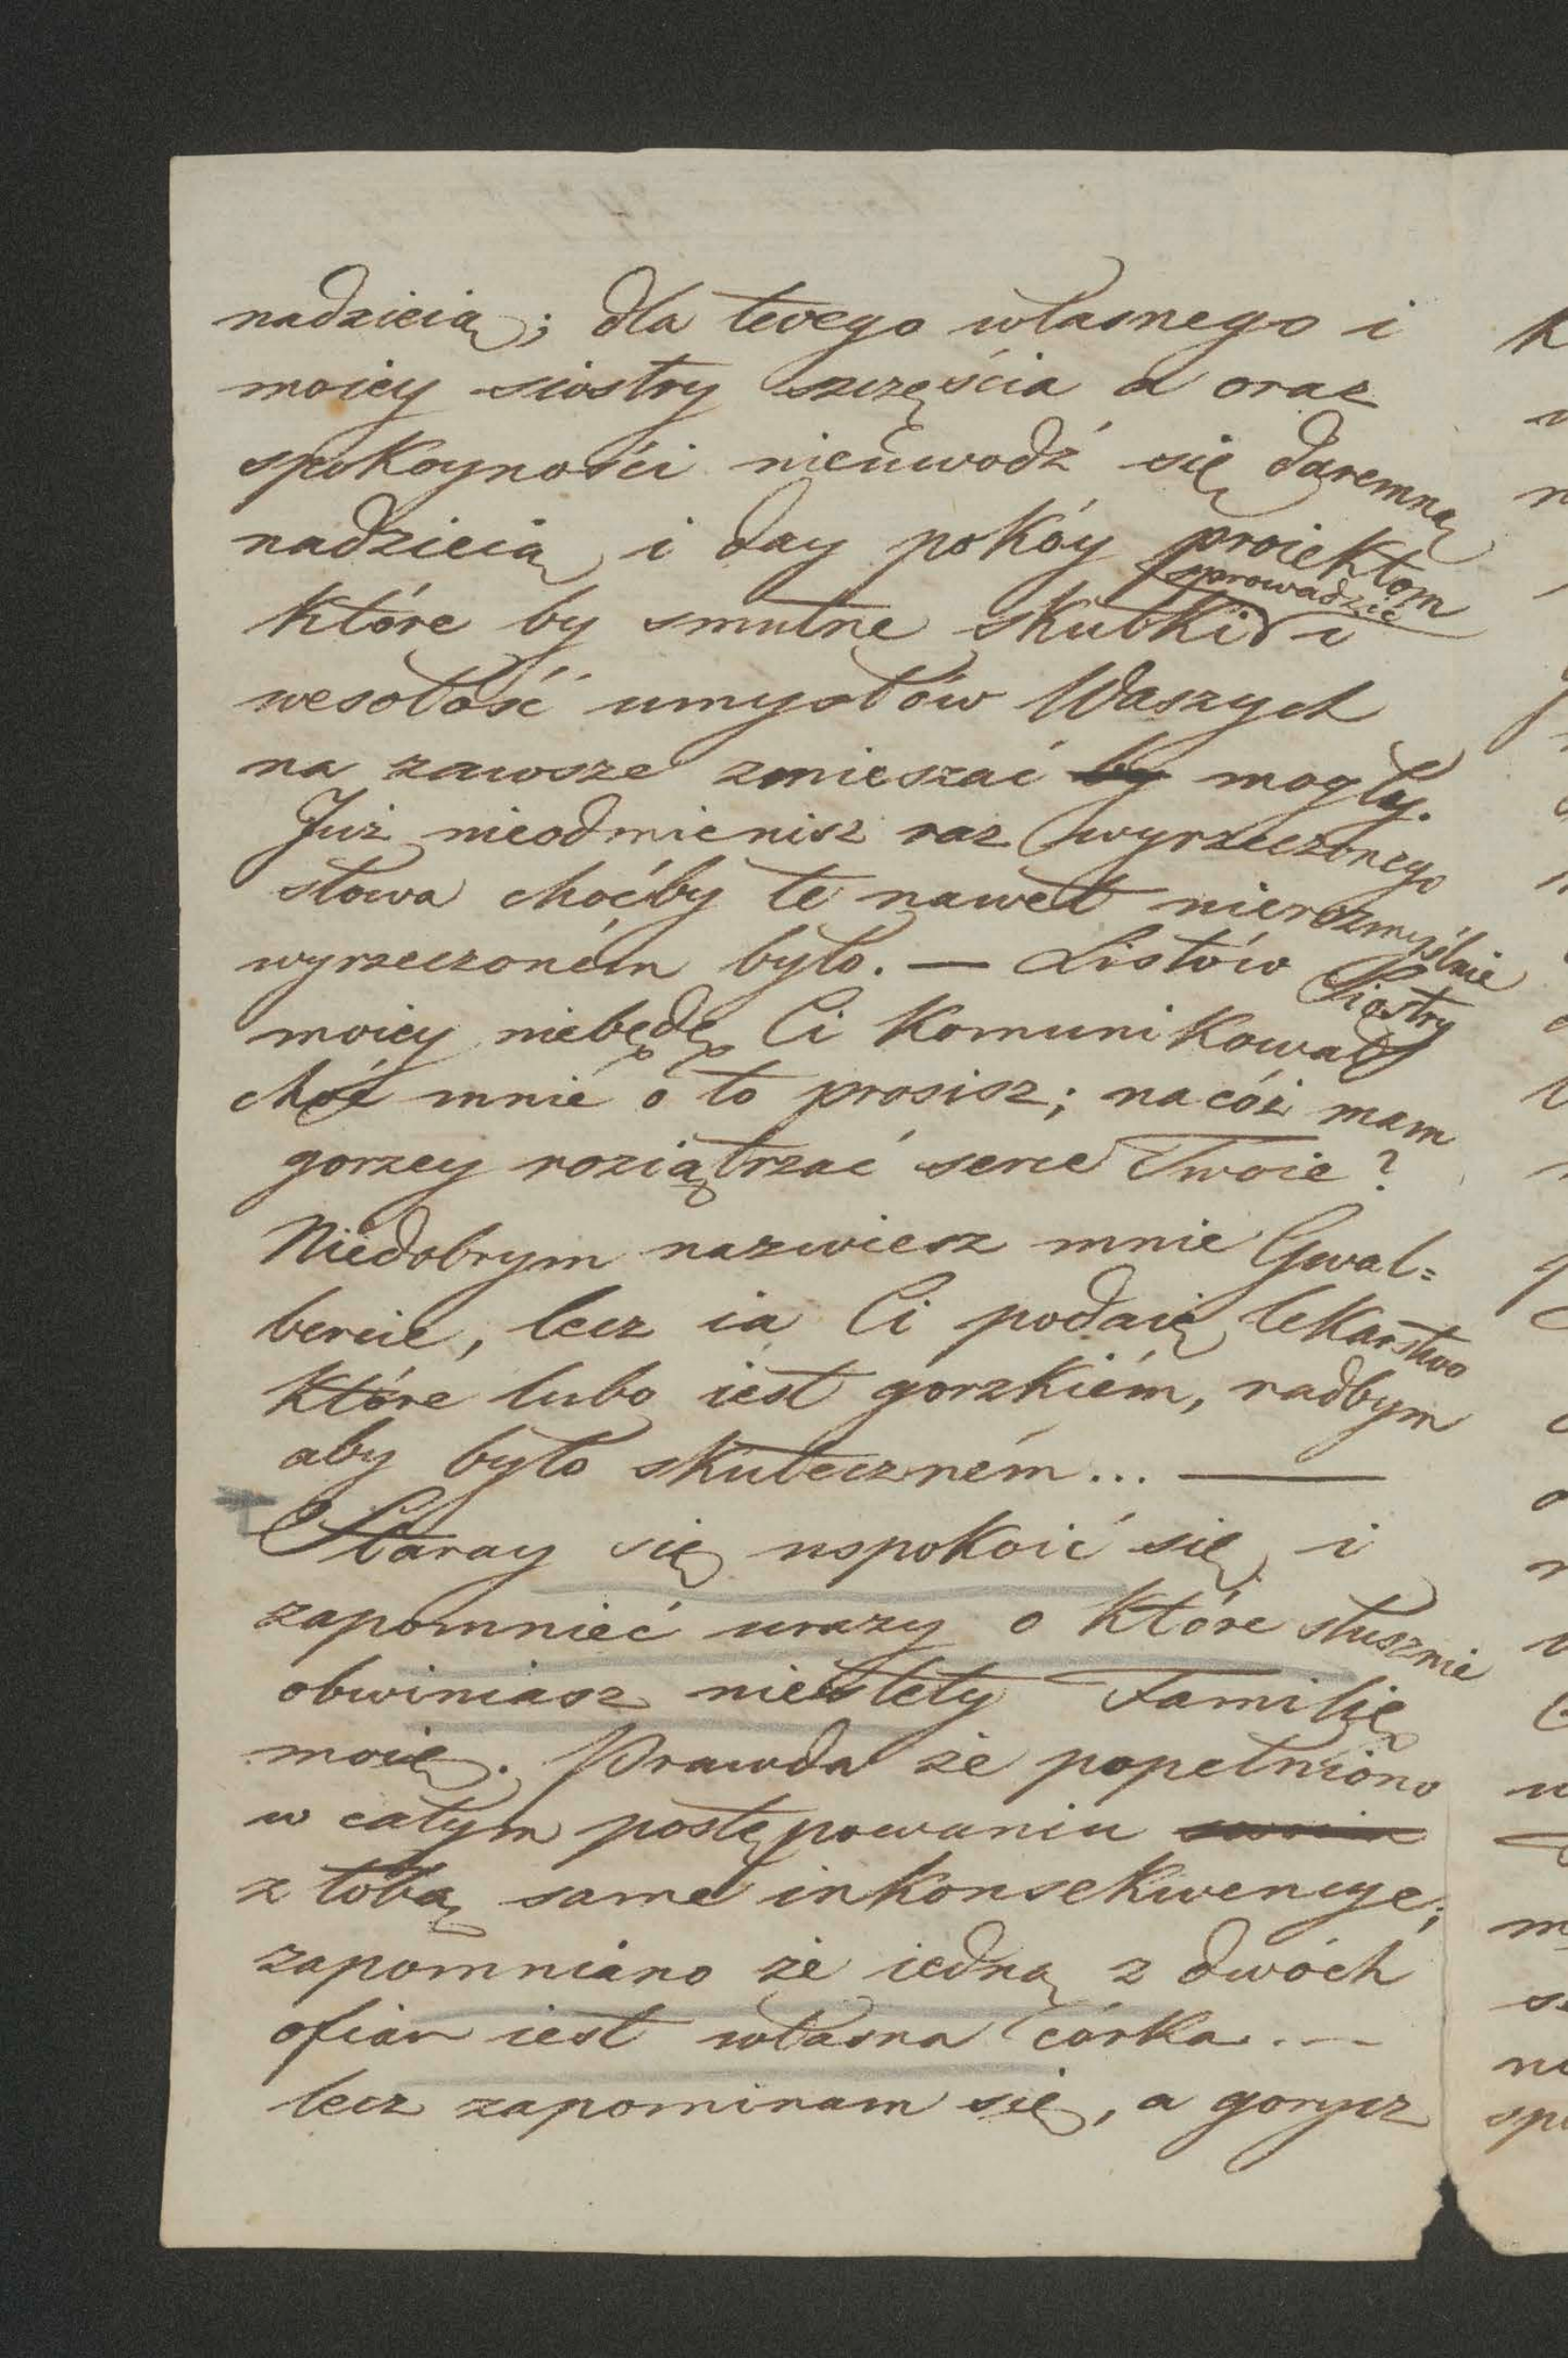 nadzieią; dla twego własnego i
moiey siostry szczęścia a oraz
spokoyności nieuwodź się daremną
nadzieią i day pokóy proiektom
które by smutne skutki sprowadzić i
wesołość umysłów Waszych
na zawsze zmieszać by mogły.
Już nieodmienisz raz wyrzeczonego
słowa choćby te nawet nierozmyślnie
wyrzeczoném było. — Listów Siostry
moiey niebędę Ci komunikował
choć mnie o to prosisz; na cóż mam
gorzey roziątrzać serce Twoie?
Niedobrym nazwiesz mnie Gwal=
bercie, lecz ia Ci podaię lekarstwo
które lubo iest gorzkiém, radbym
aby było skuteczném... —
Staray się uspokoić się i
zapomnieć urazy o które słusznie
obwiniasz niestety Familię
moię. Prawda że popełniono
w całym postępowaniu
z tobą same inkonsekwencye;
zapomniano że iedną z dwóch
ofiar iest własna córka. —
lecz zapominam się, a gorycz